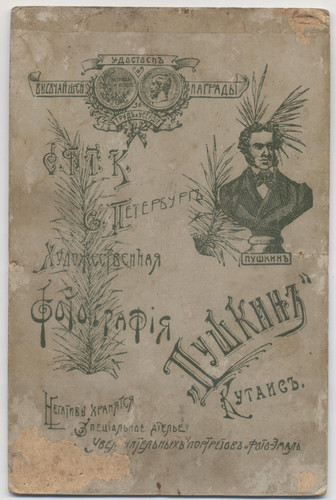 УДОСТОЕНЪ
ВЫСОЧАЙШЕЙ НАГРАДЫ
С.П.Т.К.
С. ПЕТЕРБУРГЪ
ПУШКИНЪ
ХУДОЖЕСТВЕННАЯ
ФОТОГРАФІЯ
„ПУШКИНЪ“
КУТАИСЪ.
НЕГАТИВЫ ХРАНЯТСЯ
СПЕЦІАЛЬНОЕ АТЕЛЬЕ
УВЕЛИЧИТЕЛЬНЫХЪ ПОРТРЕТОВЪ И ФОТО-ЭМАЛЬ